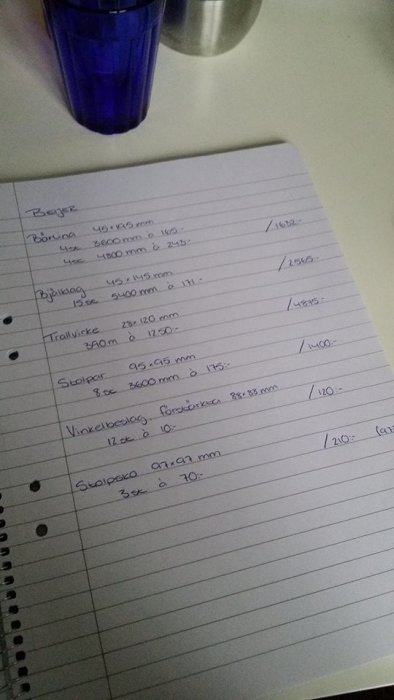 Beijer
Bärlina 45×195mm
4st 3600mm à 165:- /1632:-
4st 4800mm à 243:-
Bjälklag 45×145mm /2565:-
15st 5400mm à 171:-
Trallvirke 28×120mm /4875:-
390m à 12.50:-
Stolpar 95×95mm /1400:-
8st 3600mm à 175:-
Vinkelbeslag, förstärkta 88×88mm /120:-
12st à 10:-
Stolpsko 97×97 mm /210:-
3st à 70:-